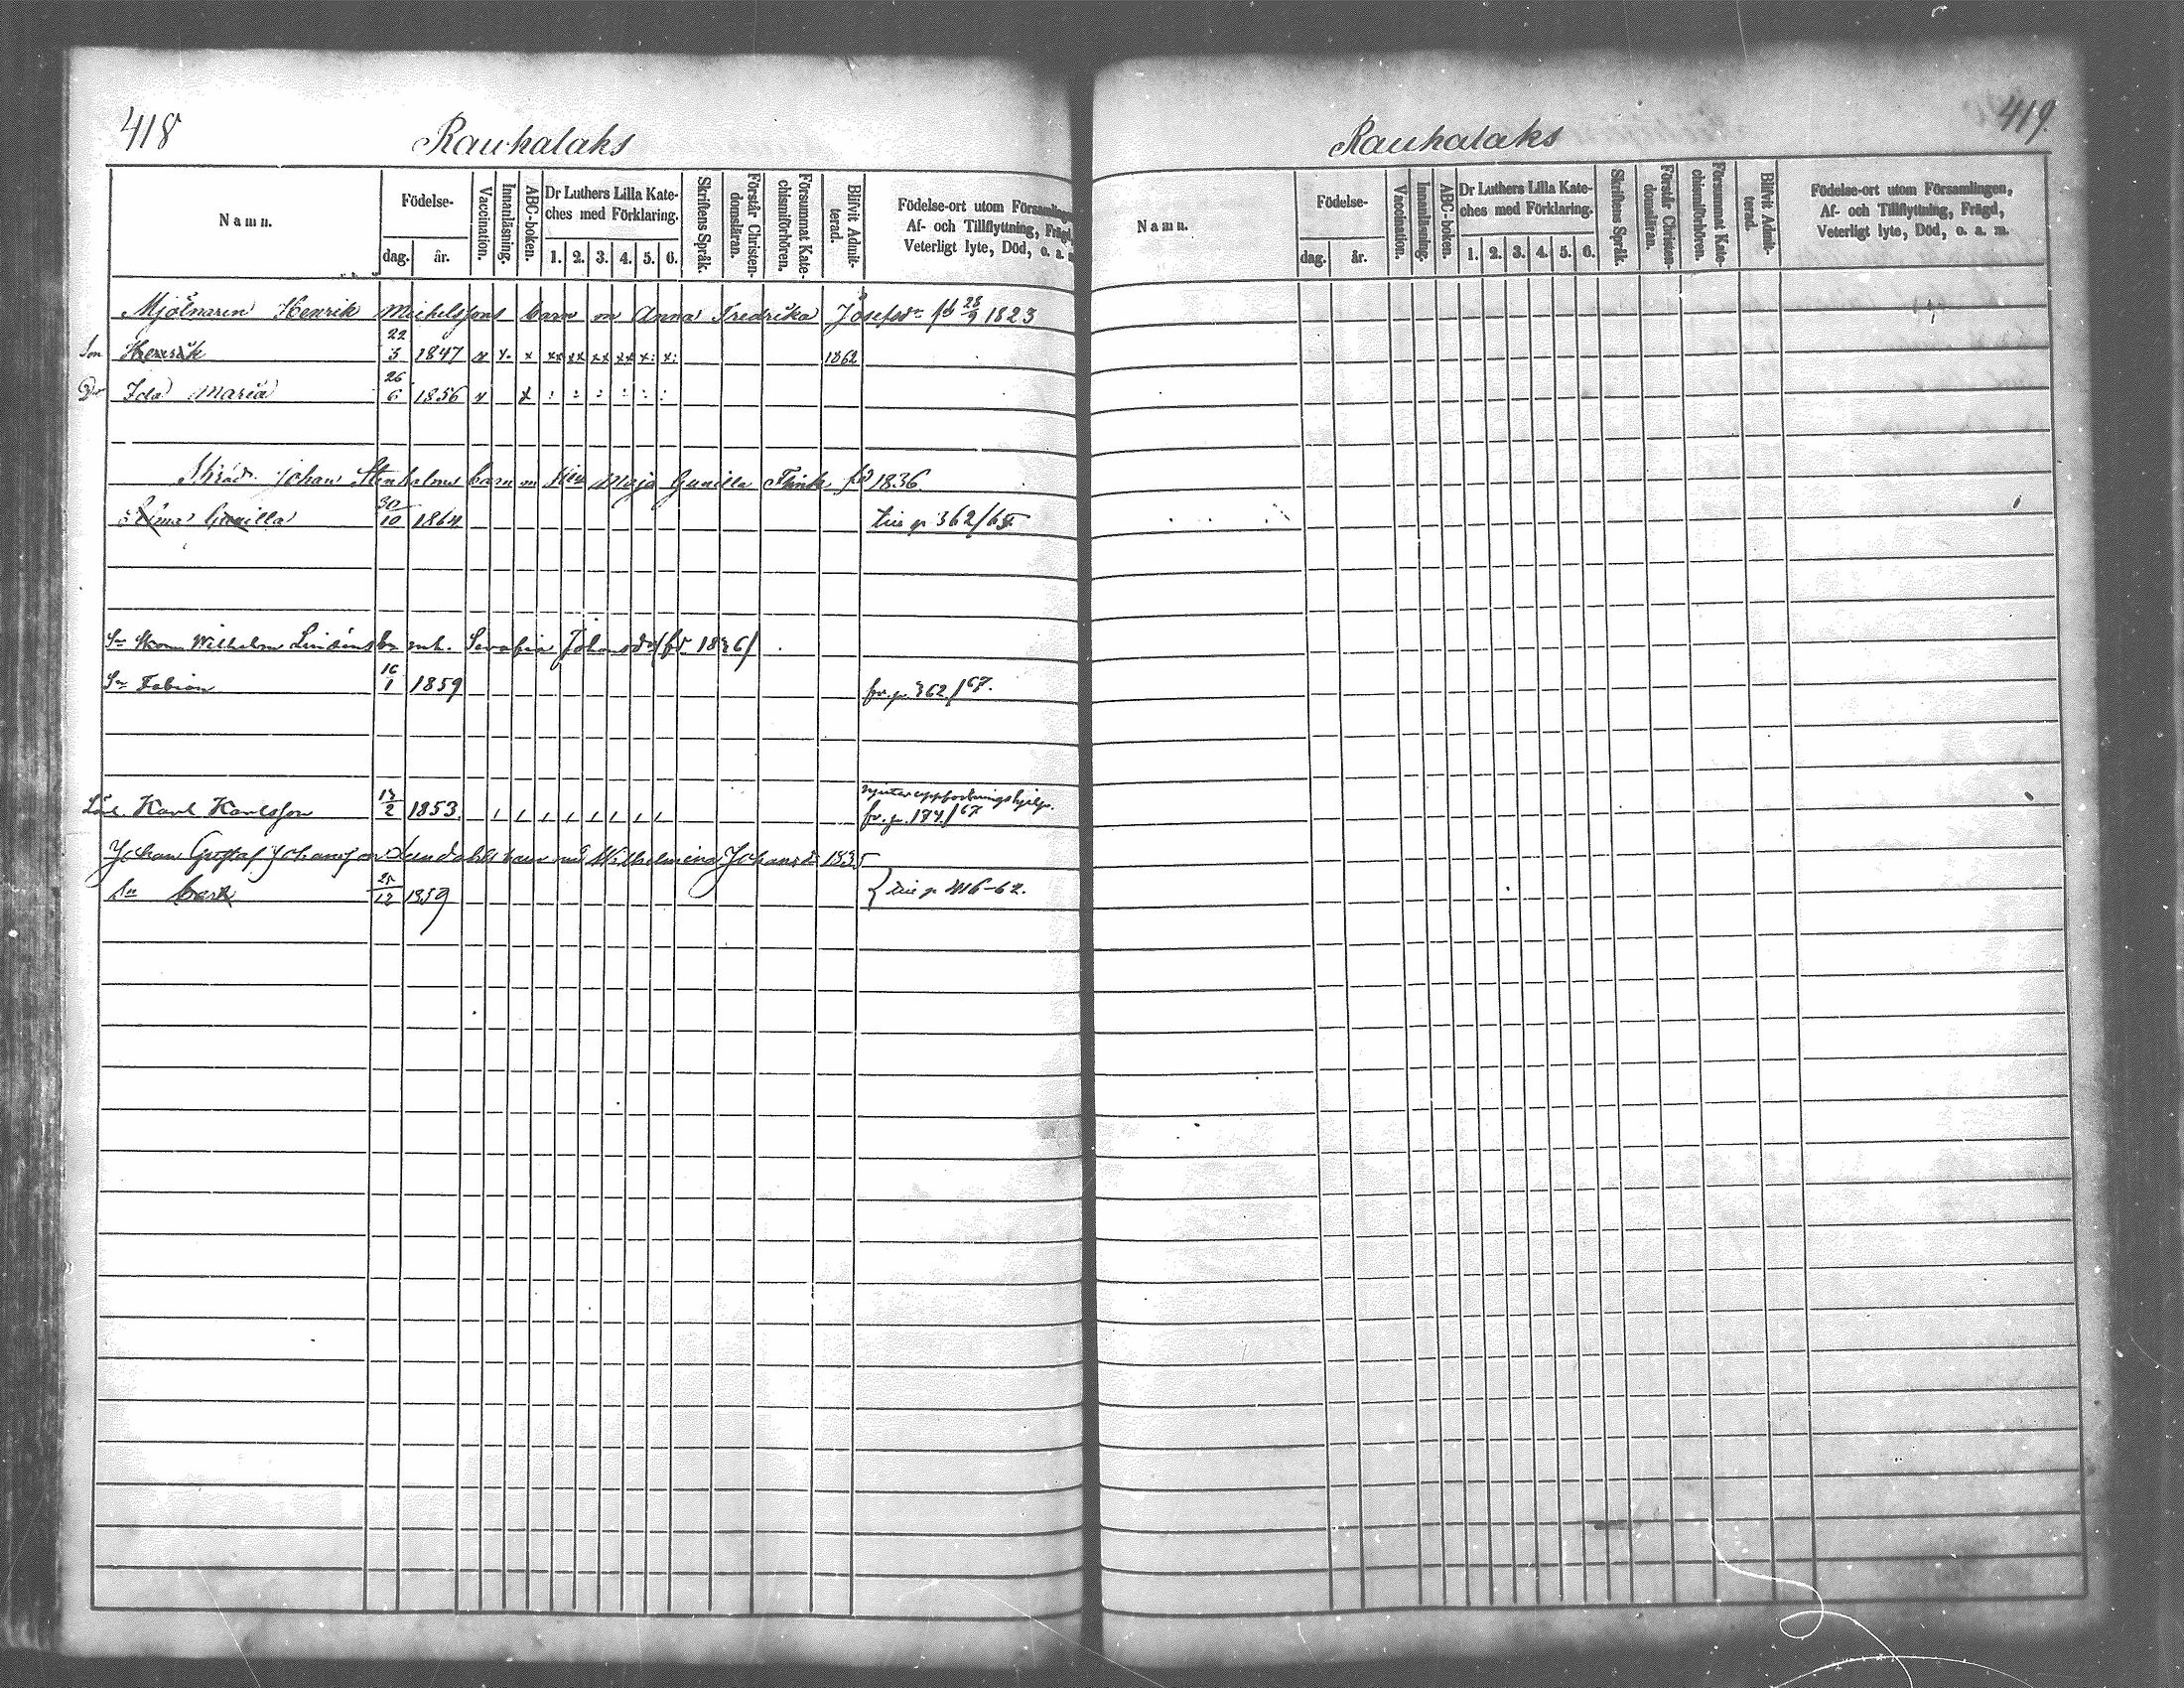 418
Rauhalaks
Namn.
Födelse-
dag.
år.
Vaccination.
Innanläsning.
ABC-boken.
Dr Luthers Lilla Kate-
ches med Förklaring.
1. 2. 3. 4. 5. 6.
Skriftens Språk.
Förstår Christen-
domsläran.
Försummat Kate-
chismiförhören.
Blifvit Admit-
terad.
Födelse-ort utom Församlingen,
Af- och Tillflyttning, Frägd,
Veterligt lyte, Död, o. a. m.
Mjölnaren Henrik Michelssons barn m Anna Fredrika Josefsdr fd 28/9 1823
Son Henrik 22/3 1847 x x x xx xx xx xx x: x: 1862
Dr Ida Maria 26/6 1856 x x : : : : : :
Johan Stenholms barn m Maja Gunilla fd 1836
Gunilla 30/10 1864 362/65
Wilhelm barn mh. Serafia Johansdr (fd 1836)
Sn Fabian 16/1 1859 fr. p. 362/67.
Karl Karlsson 13/2 1853 fr. p. 174/67
Johan Gustaf Johansson Lundahls barn md Wilhelmina Johansdr 1835
Sn Carl 25/12 1859 416-62.
419.
Rauhalaks
Namn.
Födelse-
dag.
år.
Vaccination.
Innanläsning.
ABC-boken.
Dr Luthers Lilla Kate-
ches med Förklaring.
1. 2. 3. 4. 5. 6.
Skriftens Språk.
Förstår Christen-
domsläran.
Försummat Kate-
chismiförhören.
Blifvit Admit-
terad.
Födelse-ort utom Församlingen,
Af- och Tillflyttning, Frägd,
Veterligt lyte, Död, o. a. m.